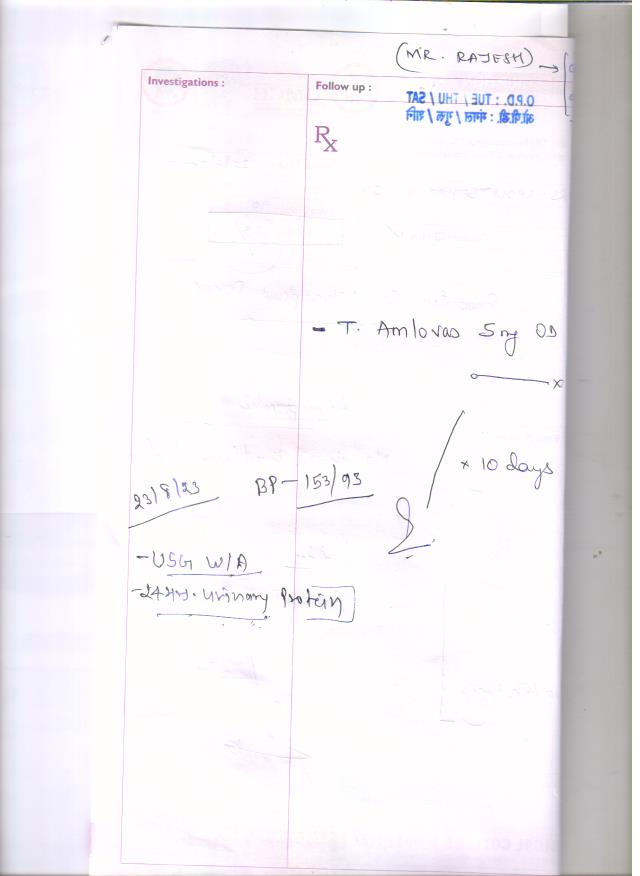 (MR. RAJESH) →
Investigations :
Follow up :
O.P.D. : TUE / THU / SAT
ओ.पी.डी. : मंगल / गुरू / शनि
Rx
- T. Amlovas 5mg OD
x 10 days
23/8/23 BP - 153/93
- USG W/A
- 24 hrs. urinary Protein